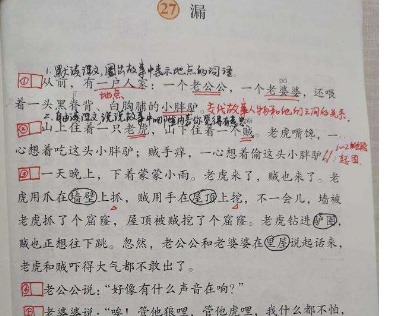 27 漏
1.默读课文,圈出故事中表示地点的词语
①从前,有一户人家:一个老公公,一个老婆婆,还喂
地点
着一头黑脊背、白胸脯的小胖驴。交代故事人物和他们之间的关系.
②山上住着一只老虎,山下住着一个贼。老虎嘴馋,一
心想着吃这头小胖驴;贼手痒,一心想着偷这头小胖驴。
起因
③一天晚上,下着蒙蒙小雨。老虎来了,贼也来了。老
虎用爪在墙壁上抓,贼用手在屋顶上挖,不一会儿,墙被
老虎抓了个窟窿,屋顶被贼挖了个窟窿。老虎钻进驴圈,
贼也正想往下跳。忽然,老公公和老婆婆在里屋说起话来,
老虎和贼吓得大气都不敢出了。
④老公公说:“好像有什么声音在响?”
⑤老婆婆说:“唉!管他狼哩,管他虎哩,我什么都不怕,